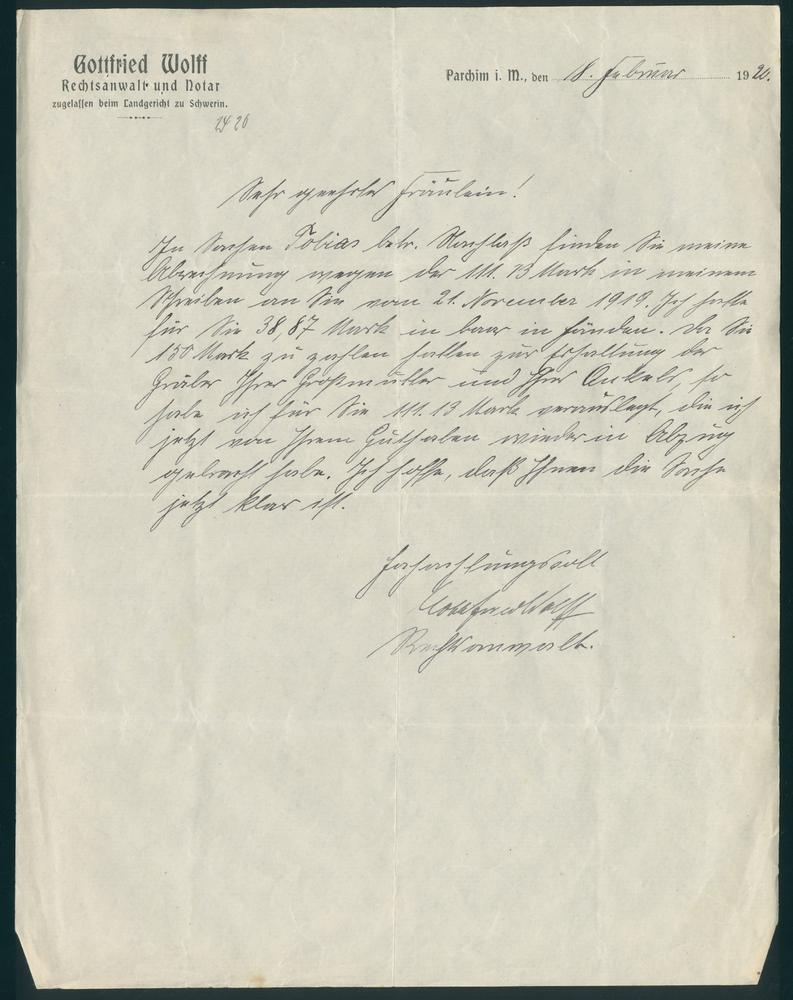 Gottfried Wolff
Rechtsanwalt und Notar
zugelassen beim Landgericht zu Schwerin.
Parchim i. M., den 18. Februar 1920.
24 20
Sehr geehrtes Fräulein!
In Sachen Tobias betr. Nachlaß finden Sie meine
Abrechnung wegen der 111.13 Mark in meinem
Schreiben an Sie vom 21. November 1919. Ich hatte
für Sie 38,87 Mark in baar in Händen. Da Sie
150 Mark zu zahlen hatten zur Erhaltung der
Gräber Ihrer Großmutter und Ihres Onkels, so
habe ich für Sie 111.13 Mark verauslagt, die ich
jetzt von Ihrem Guthaben wieder in Abzug
gebracht habe. Ich hoffe, daß Ihnen die Sache
jetzt klar ist.
Hochachtungsvoll
Gottfried Wolff
Rechtsanwalt.